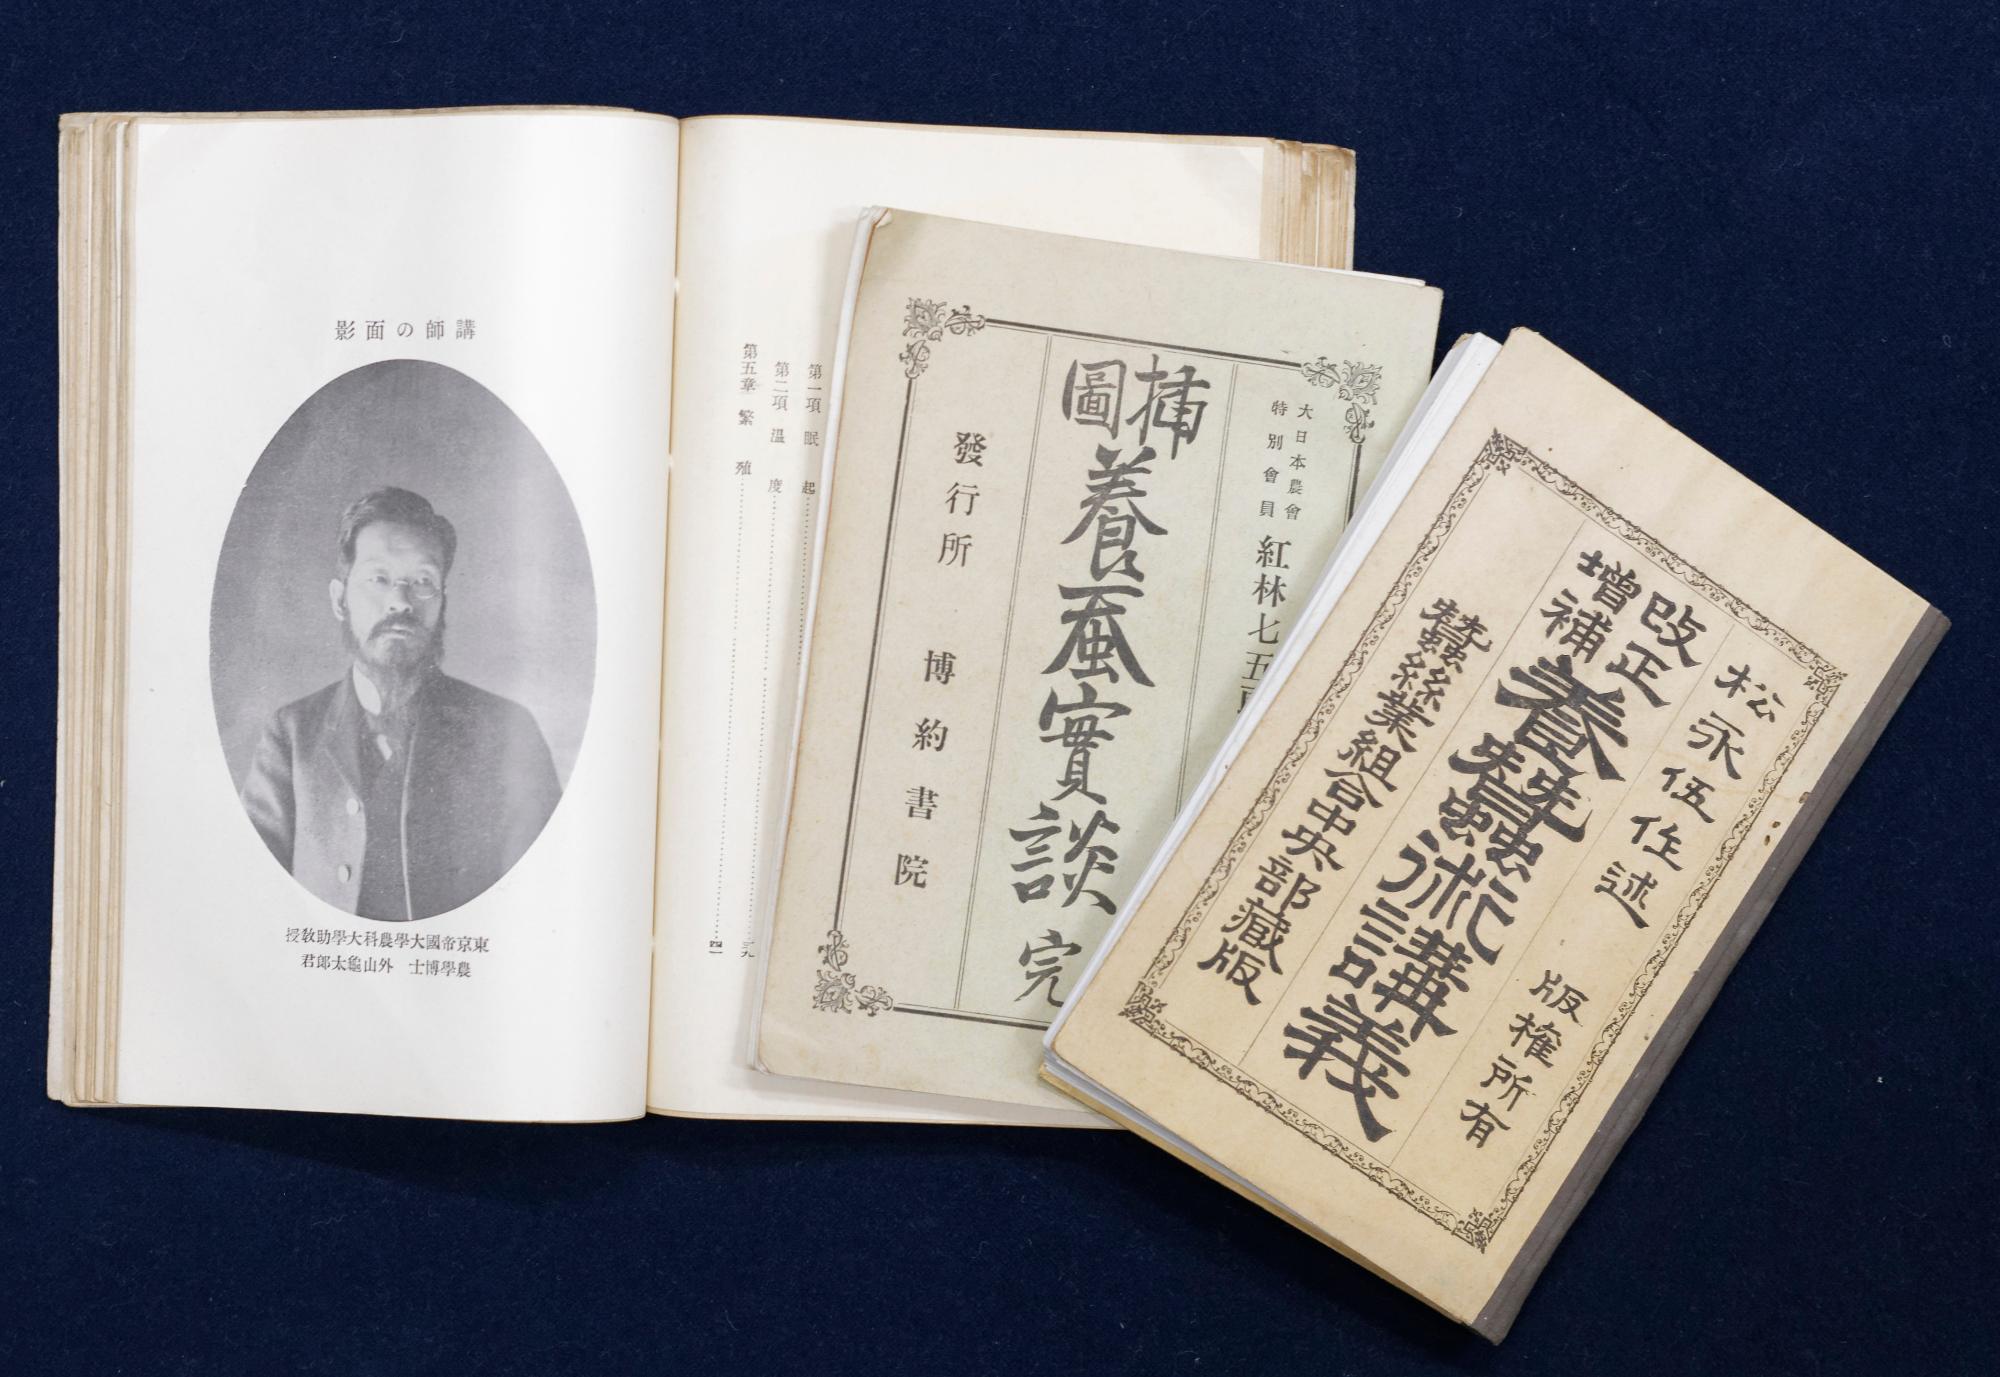 講師の面影
東京帝國大學農科大學助敎授
農學博士　外山龜太郎君
第一項　眠　起
第二項　溫　度
第五章　繁　殖
三九
四一
大日本農會
特別會員
紅林七五
挿圖
養蚕實談　完
發行所　博約書院
松永伍作述　版權所有
改正
增補
養蠶術講義
蠶絲業組合中央部藏版